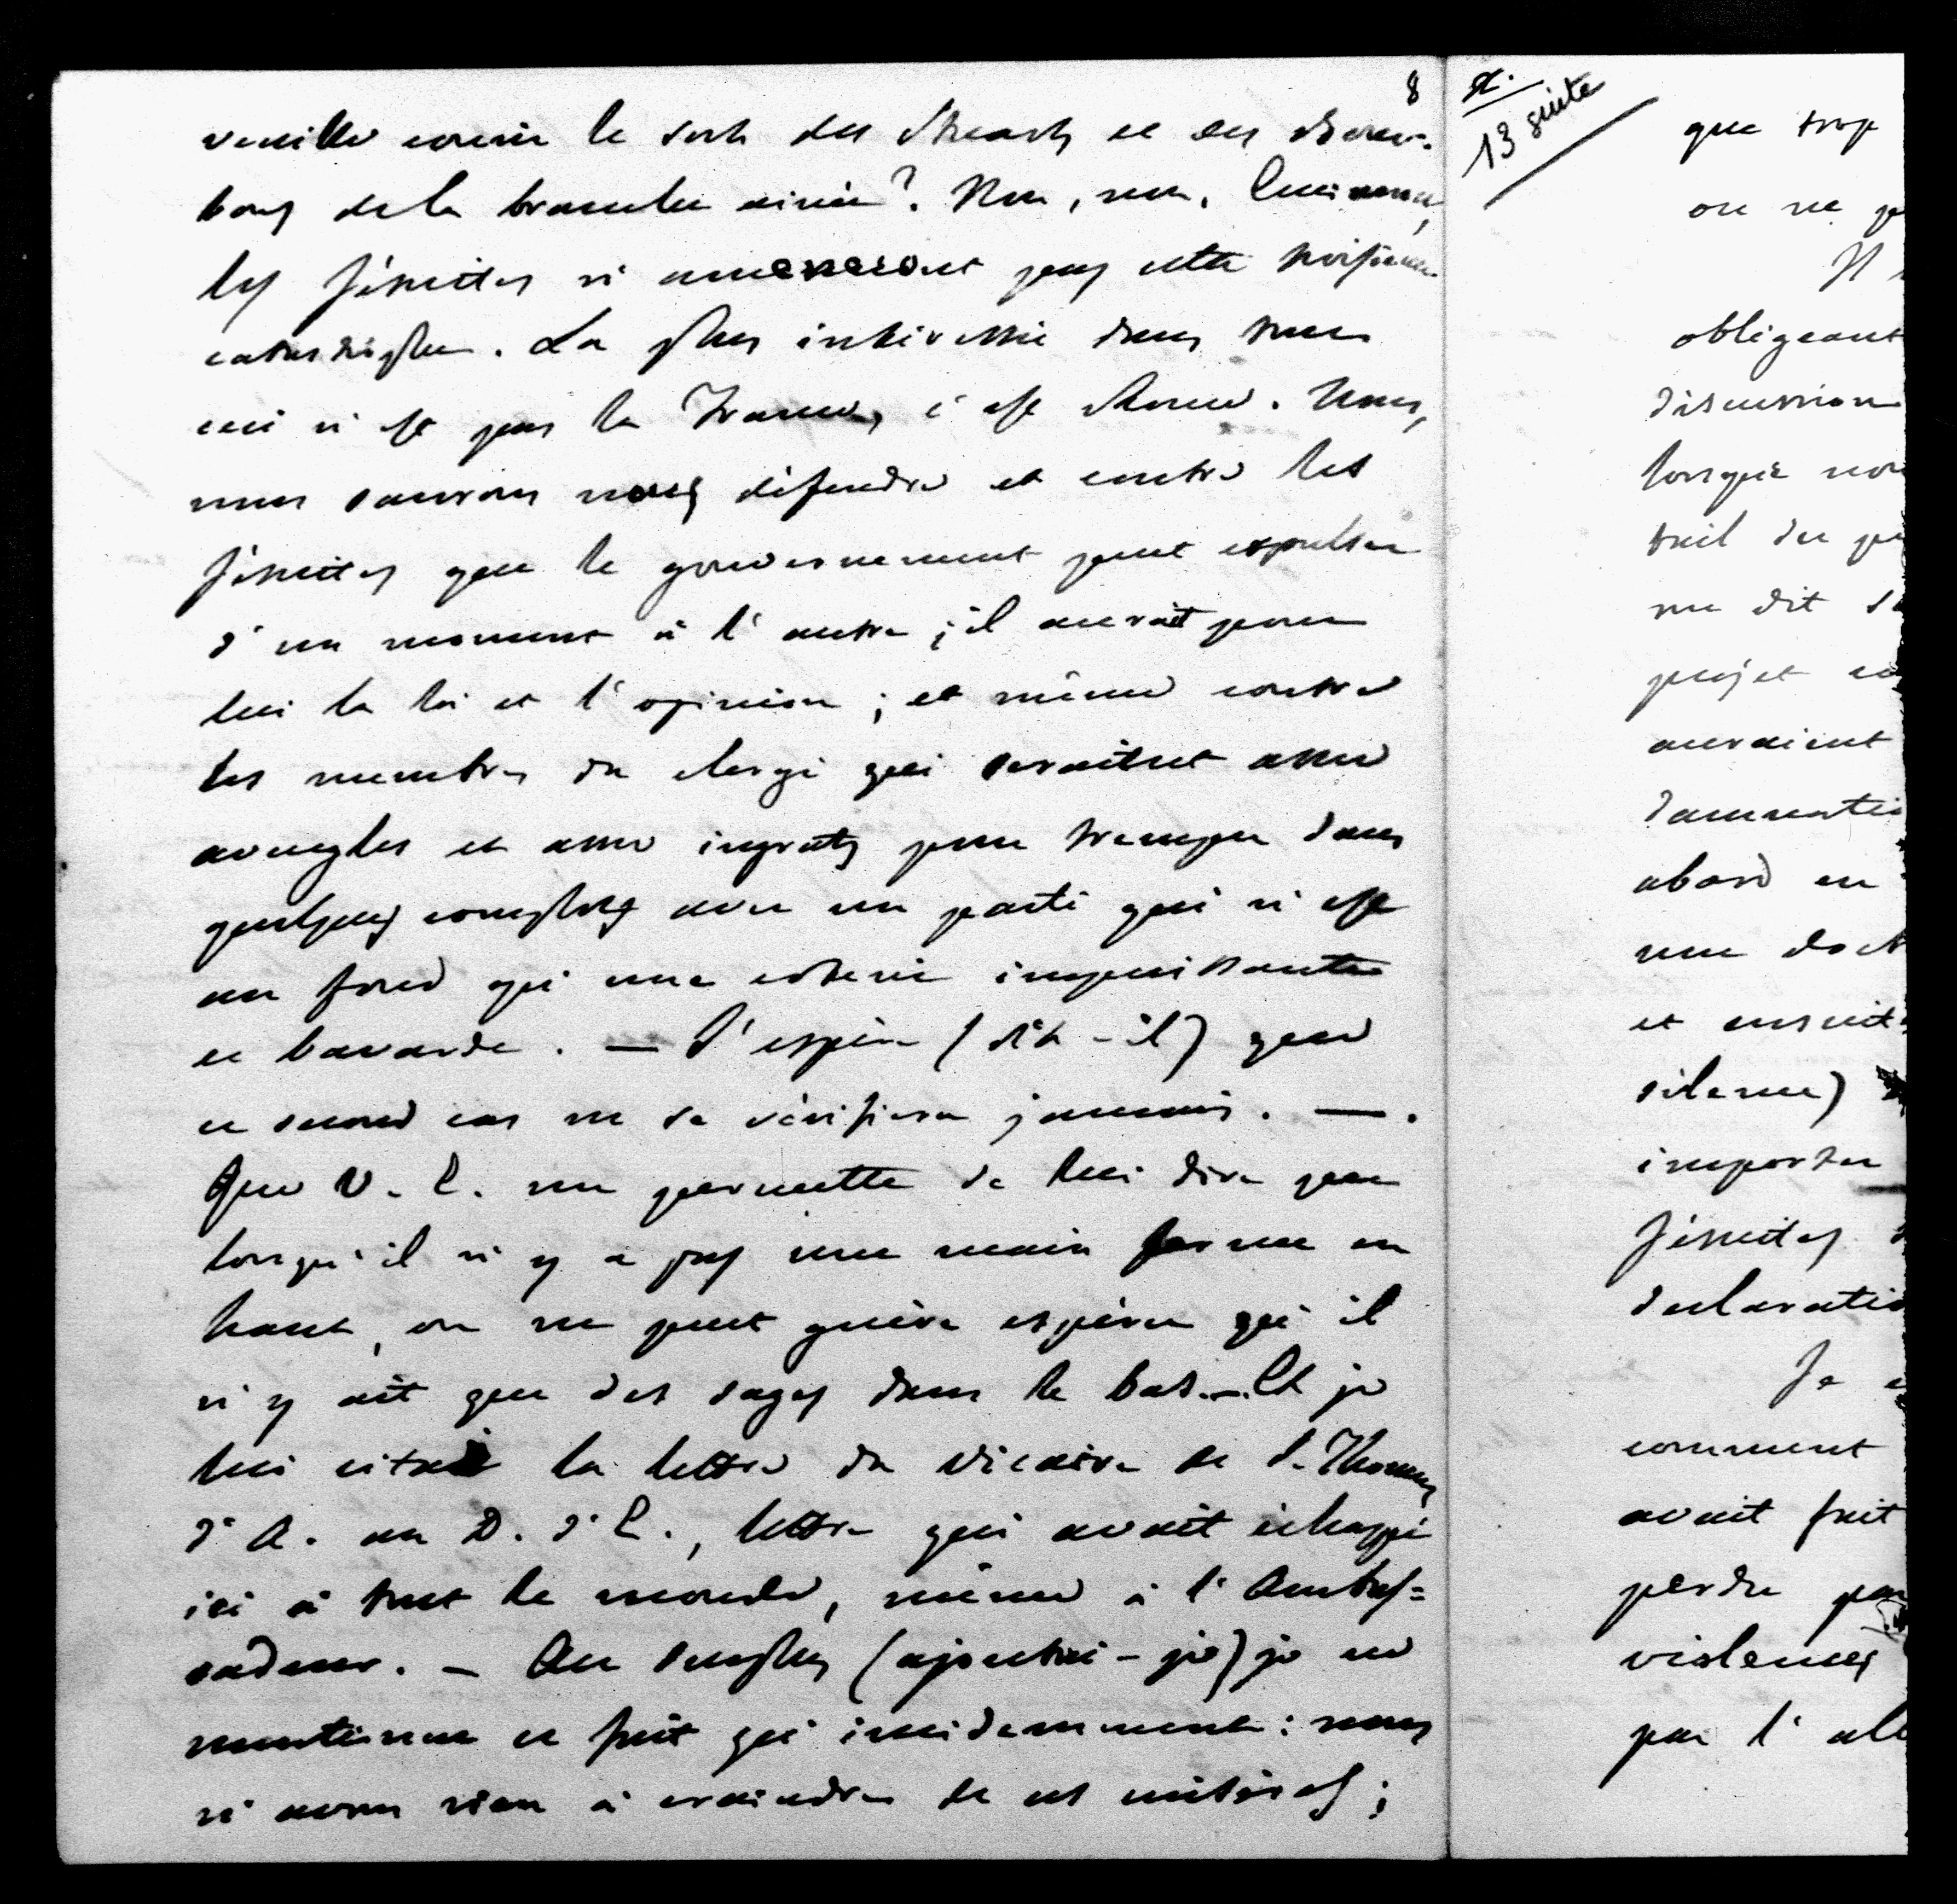 8
veuille courir le sort des Stuarts et des Bour-
bons de la branche ainée? Non, non, Eminence,
les Jésuites n'amèneront pas cette troisième
catastrophe. La plus intéressée dans tout
ceci n'est pas la France, c'est Rome. Nous,
nous saurons nous défendre et contre les
Jésuites que le gouvernement peut expulser
d'un moment à l'autre; il aurait pour
lui la loi et l'opinion; et même contre
les membres du clergé qui seraient assez
aveugles et assez ingrats pour tremper dans
quelques complots avec un parti qui n'est
au fond qu'une coterie impuissante
et bavarde. — J'espère (dit-il) que
ce second cas ne se vérifiera jamais. —.
Que V. E. me permette de lui dire que
lorsqu'il n'y a pas une main ferme en
haut, on ne peut guère espérer qu'il
n'y ait que des sages dans le bas. — Et je
lui citai la lettre du vicaire de S. Thomas
d'A. au D. d'E., lettre qui avait échappé
ici à tout le monde, même à l'Ambas=
sadeur. — Au surplus (ajoutai-je) je ne
mentionne ce fait qu'incidemment: nous
n'avons rien à craindre de ces misères;
13 suite
que trop
on ne
obligeant
discussion
lorsque
me dit
projet
auraient
abord en
une
et ensuit
silence)
importer
Jésuites
declaratio
Je
comment
avait fait
perdre
violences
par l'